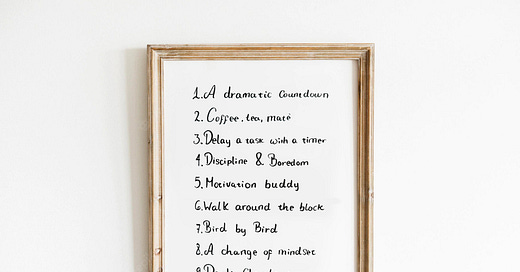 1. A dramatic Countdown
2. Coffee, tea, maté
3. Delay a task with a timer
4. Discipline & Boredom
5. Motivation buddy
6. Walk around the block
7. Bird by Bird
8. A change of mindset
9.